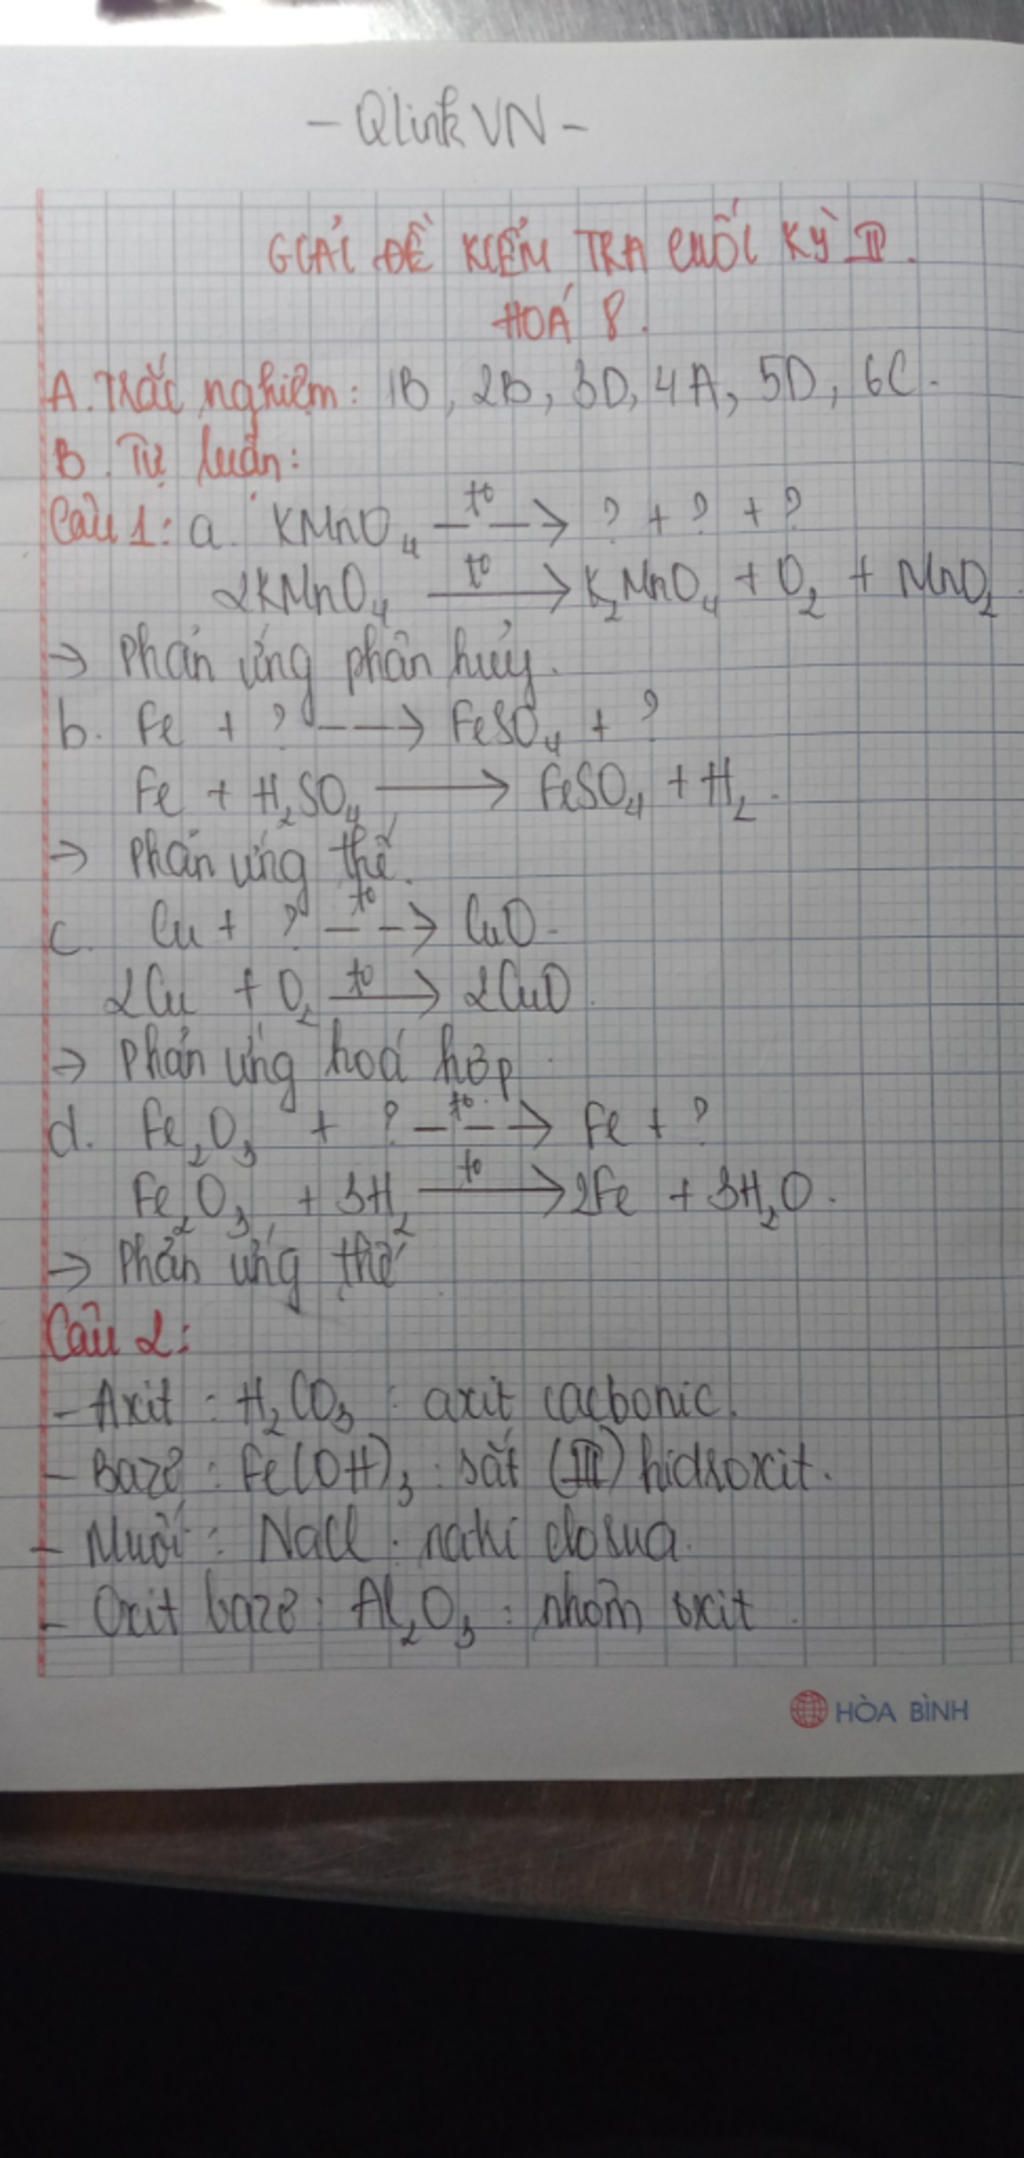 - Qlink VN -
GIẢI ĐỀ KIỂM TRA CUỐI KỲ II.
HOÁ 8.
A. Trắc nghiệm: 1B, 2B, 3D, 4A, 5D, 6C.
B. Tự luận:
Câu 1: a. KMnO₄ --t⁰--> ? + ? + ?
2KMnO₄ —t⁰→ K₂MnO₄ + O₂ + MnO₂.
→ Phản ứng phân hủy.
b. Fe + ? ---> FeSO₄ + ?
Fe + H₂SO₄ ⟶ FeSO₄ + H₂.
→ Phản ứng thế.
c. Cu + ? --t⁰--> CuO.
2Cu + O₂ —t⁰→ 2CuO.
→ Phản ứng hoá hợp.
d. Fe₂O₃ + ? --t⁰--> Fe + ?
Fe₂O₃ + 3H₂ —t⁰→ 2Fe + 3H₂O.
→ Phản ứng thế
Câu 2:
- Axit: H₂CO₃: axit cacbonic.
- Bazơ: Fe(OH)₃: sắt (III) hiđroxit.
- Muối: NaCl: natri clorua.
- Oxit bazơ: Al₂O₃: nhôm oxit.
HÒA BÌNH